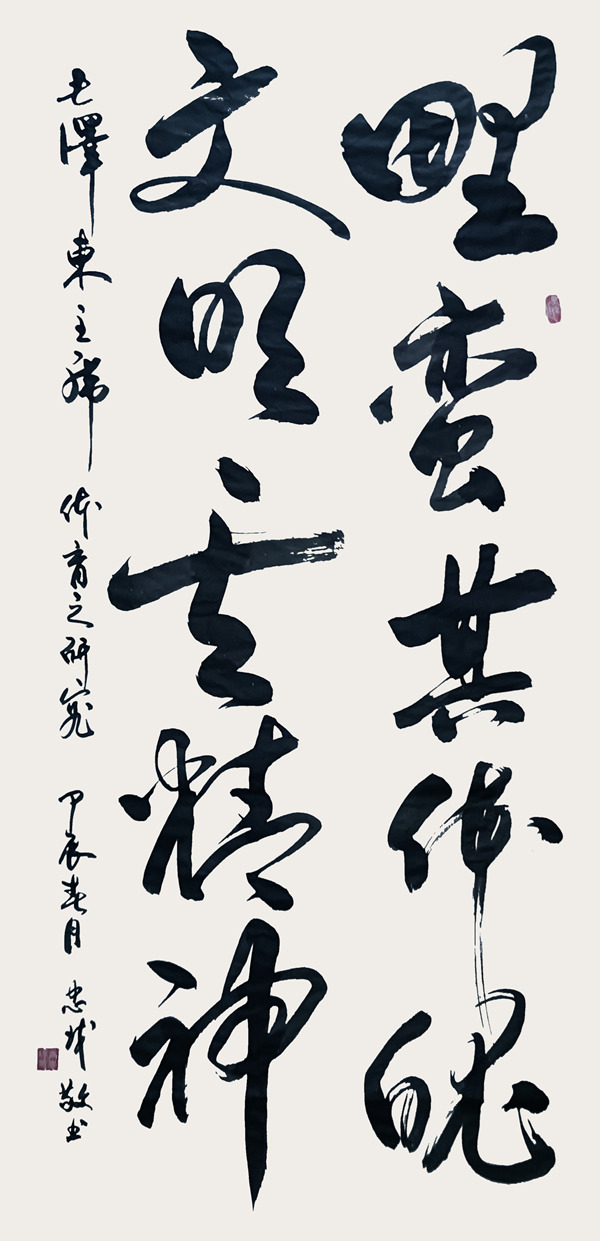 野蛮其体魄
文明其精神
毛澤東主席 体育之研究 甲辰春月 忠敬书